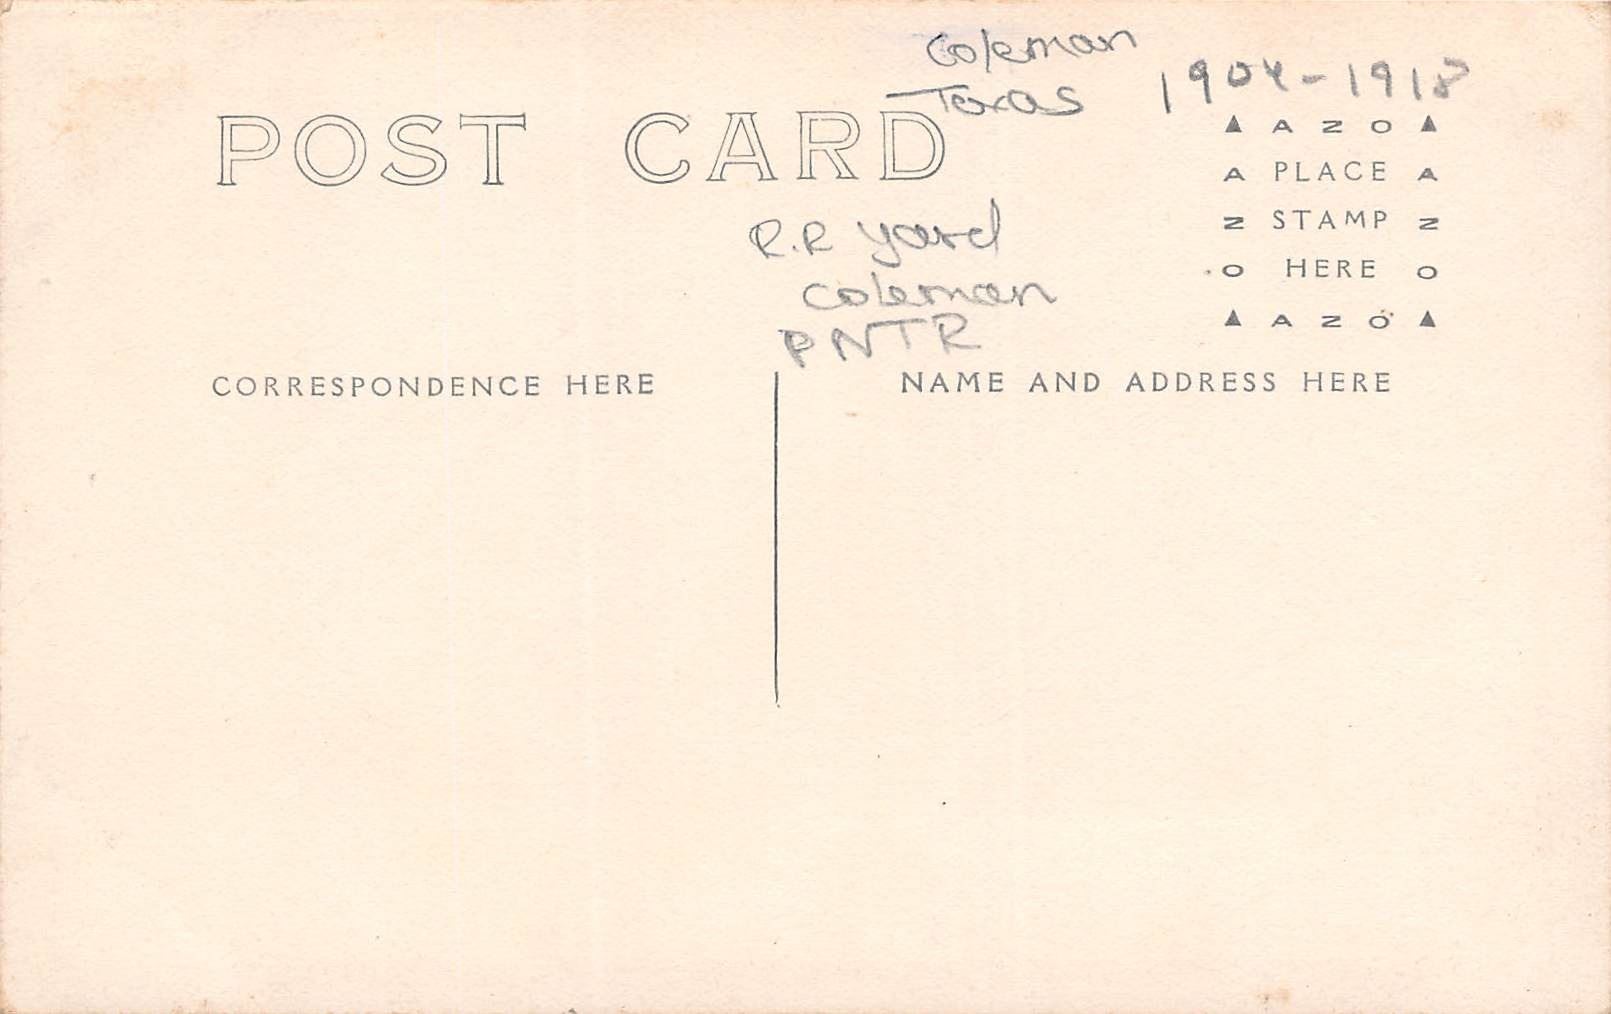 Coleman
Texas
1904-1918
POST CARD
▲ A Z O ▲
A PLACE A
Z STAMP Z
O HERE O
▲ A Z O ▲
R.R yard
Coleman
PNTR
CORRESPONDENCE HERE
NAME AND ADDRESS HERE